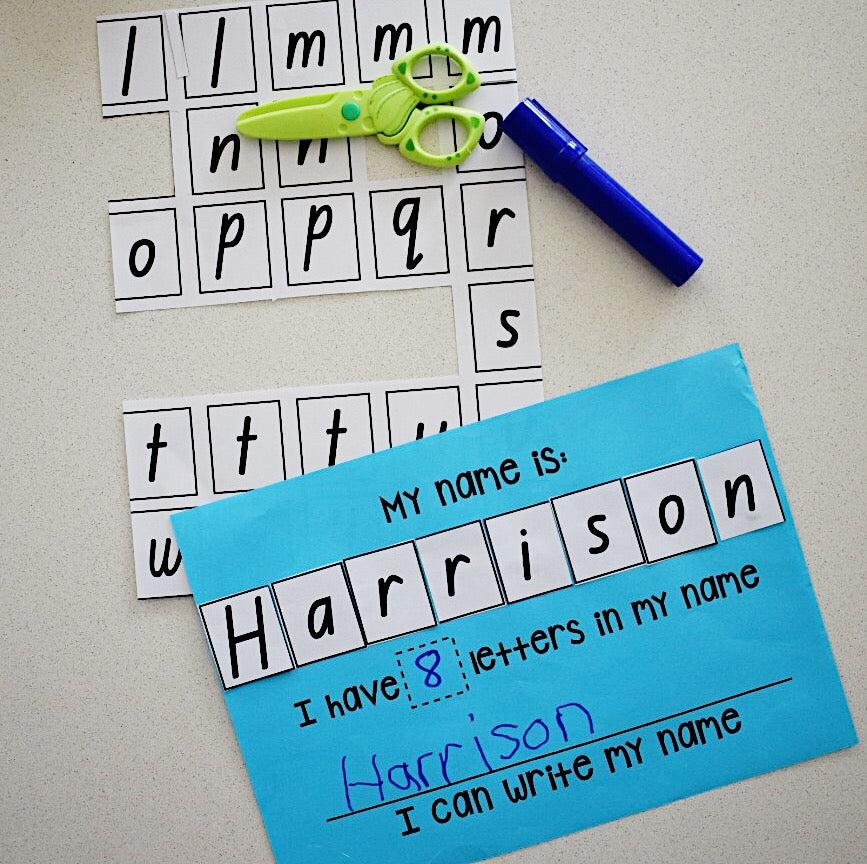 l l m m m
n n o
o p p q r
s
t t t u
w
My name is:
Harrison
I have 8 letters in my name
Harrison
I can write my name